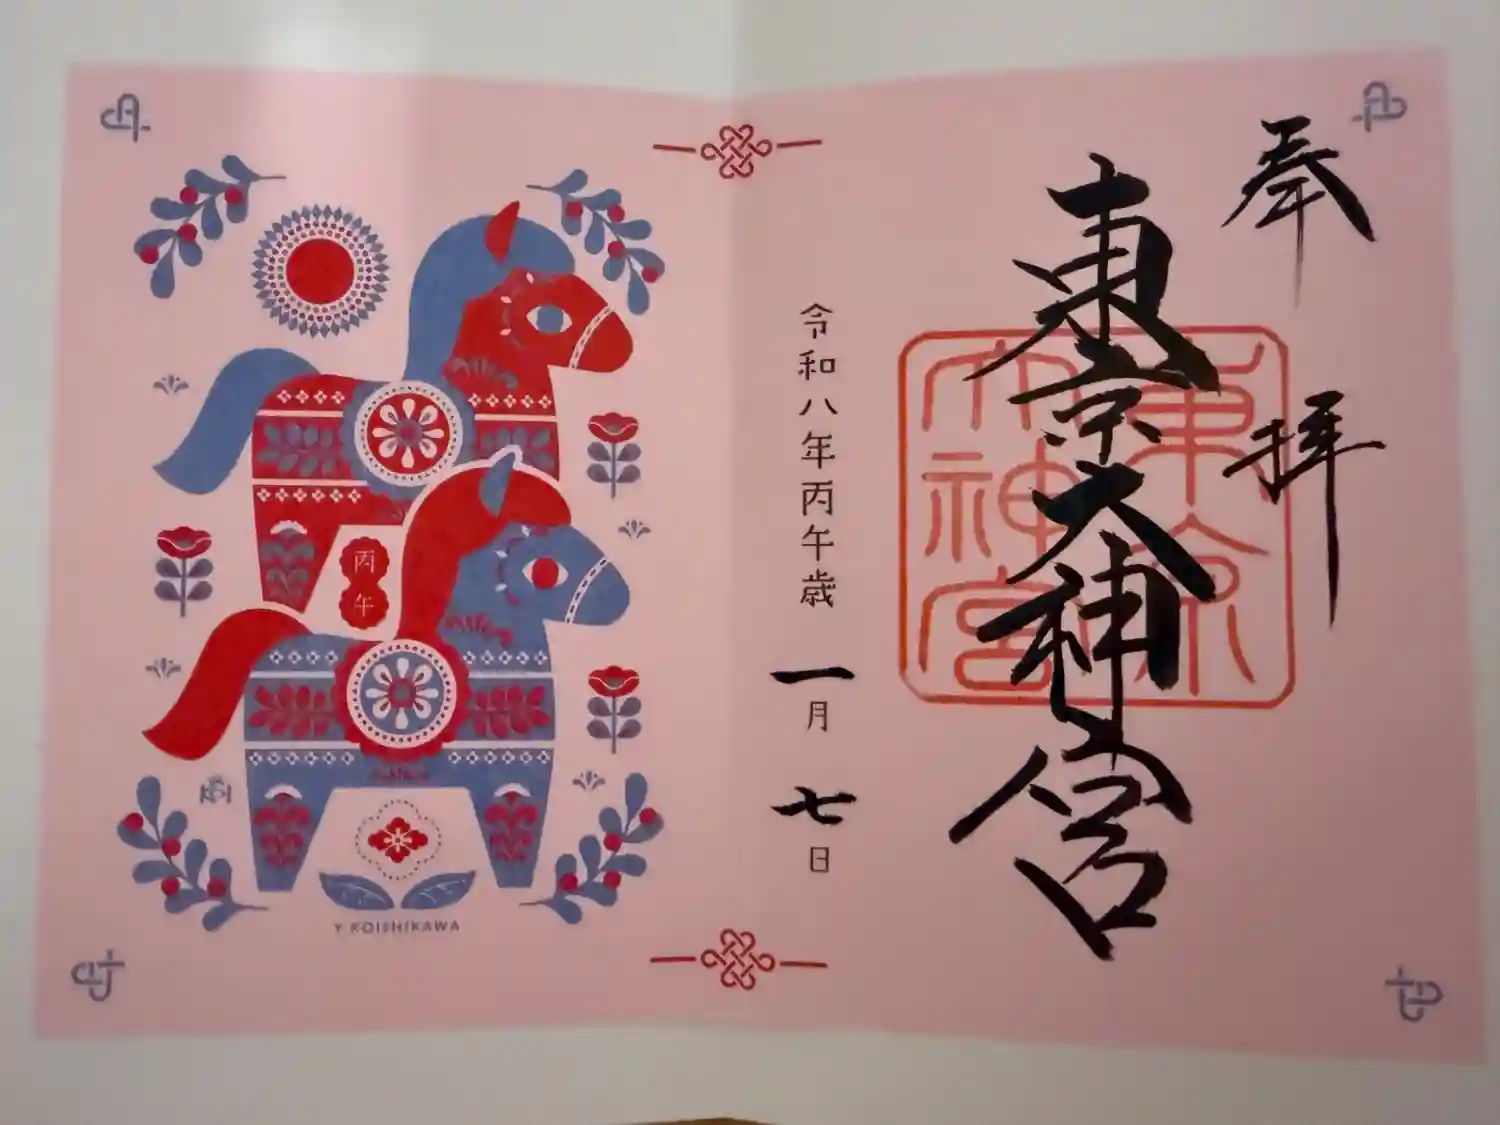 奉拝
東京大神宮
東京大神宮
令和八年丙午歳
一月七日
丙午
Y KOISHIKAWA